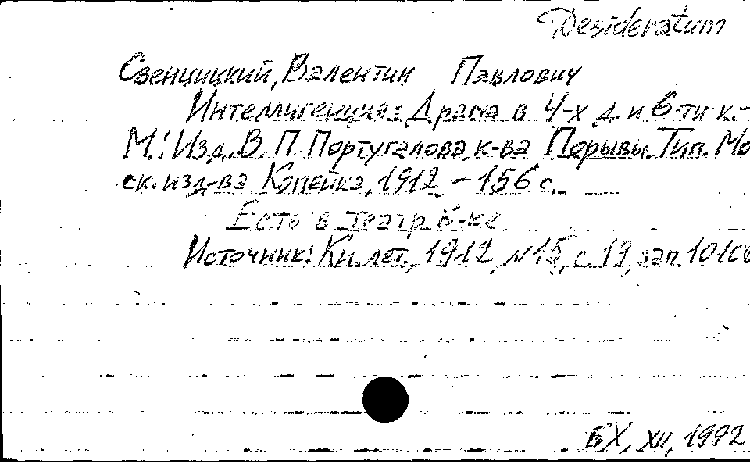 Desideratum
Свенцицкий, Валентин Павлович
Интеллигенция: Драма в 4-х д. и 6-ти к.-
М.: Изд. В. П. Португалова, к-ва Порывы. Тип. Мо
ск. изд-ва Копейка, 1912 - 156 с.
Есть в театр. б-ке
Источник: Кн. лет., 1912, №15, с. 19, зап.
БХ, XII, 1992